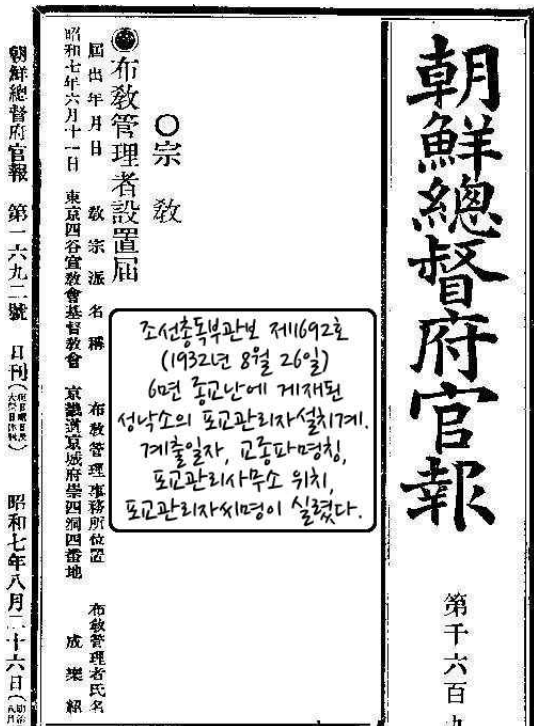 朝鮮總督府官報
第千六百九
〇宗教
布教管理者設置屆
屆出年月日 教宗派名稱 布教管理事務所位置 布教管理者氏名
昭和七年六月十一日 東京四谷宣教會基督教會 京畿道京城府崇四洞四番地 成樂紹
조선총독부관보 제1692호
(1932년 8월 26일)
6면 종교난에 게재된
성낙소의 포교관리자설치계.
계출일자, 교종파명칭,
포교관리사무소 위치,
포교관리자씨명이 실렸다.
朝鮮總督府官報 第一六九二號 日刊 昭和七年八月二十六日